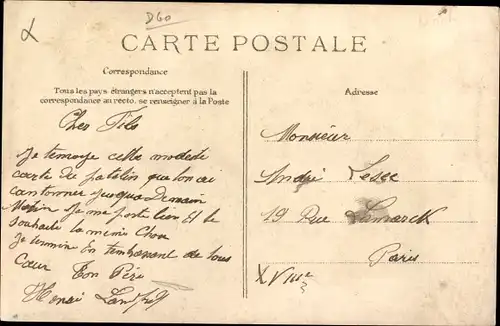 D60
CARTE POSTALE
Correspondance
Tous les pays étrangers n'acceptent pas la
correspondance au recto, se renseigner à la Poste
Adresse
Cher Fils
Je t'envoye cette modeste
carte de patelin que lon ai
cantonner jusqua Demain
Matin Je me porte bien Et te
souhaite la meme Chose
Je termine En tembrassant de tous
Cœur Ton Père
Henri
Monsieur
André
19 Rue Lamarck
Paris
XVIIIe